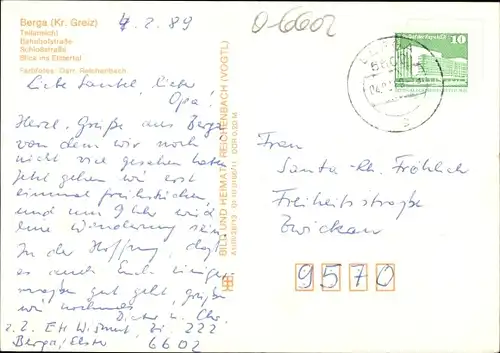 Berga (Kr. Greiz)
Teilansicht
Bahnhofstraße
Schloßstraße
Blick ins Elstertal
Farbfotos: Darr, Reichenbach
4.2.89
06602
Liebe Tantel, lieber
Opa!
Herzl. Grüße aus Berga
von dem wir noch
nicht viel gesehen haben
Jetzt gehen wir erst
einmal frühstücken,
und um 9 Uhr wird
eine Wanderung sein.
In der Hoffnung, daß
es auch Euch einiger-
maßen gut geht, grüßen
wir nochmals
Dieter u. Chr.
z.Z. EH Wismut, Zi. 222
Berga/Elster 6602
BILD UND HEIMAT REICHENBACH (VOGTL)
DDR 0,20 M
10
Frau
Santa-Kh. Fröhlich
Freiheitsstraße
Zwickau
9570